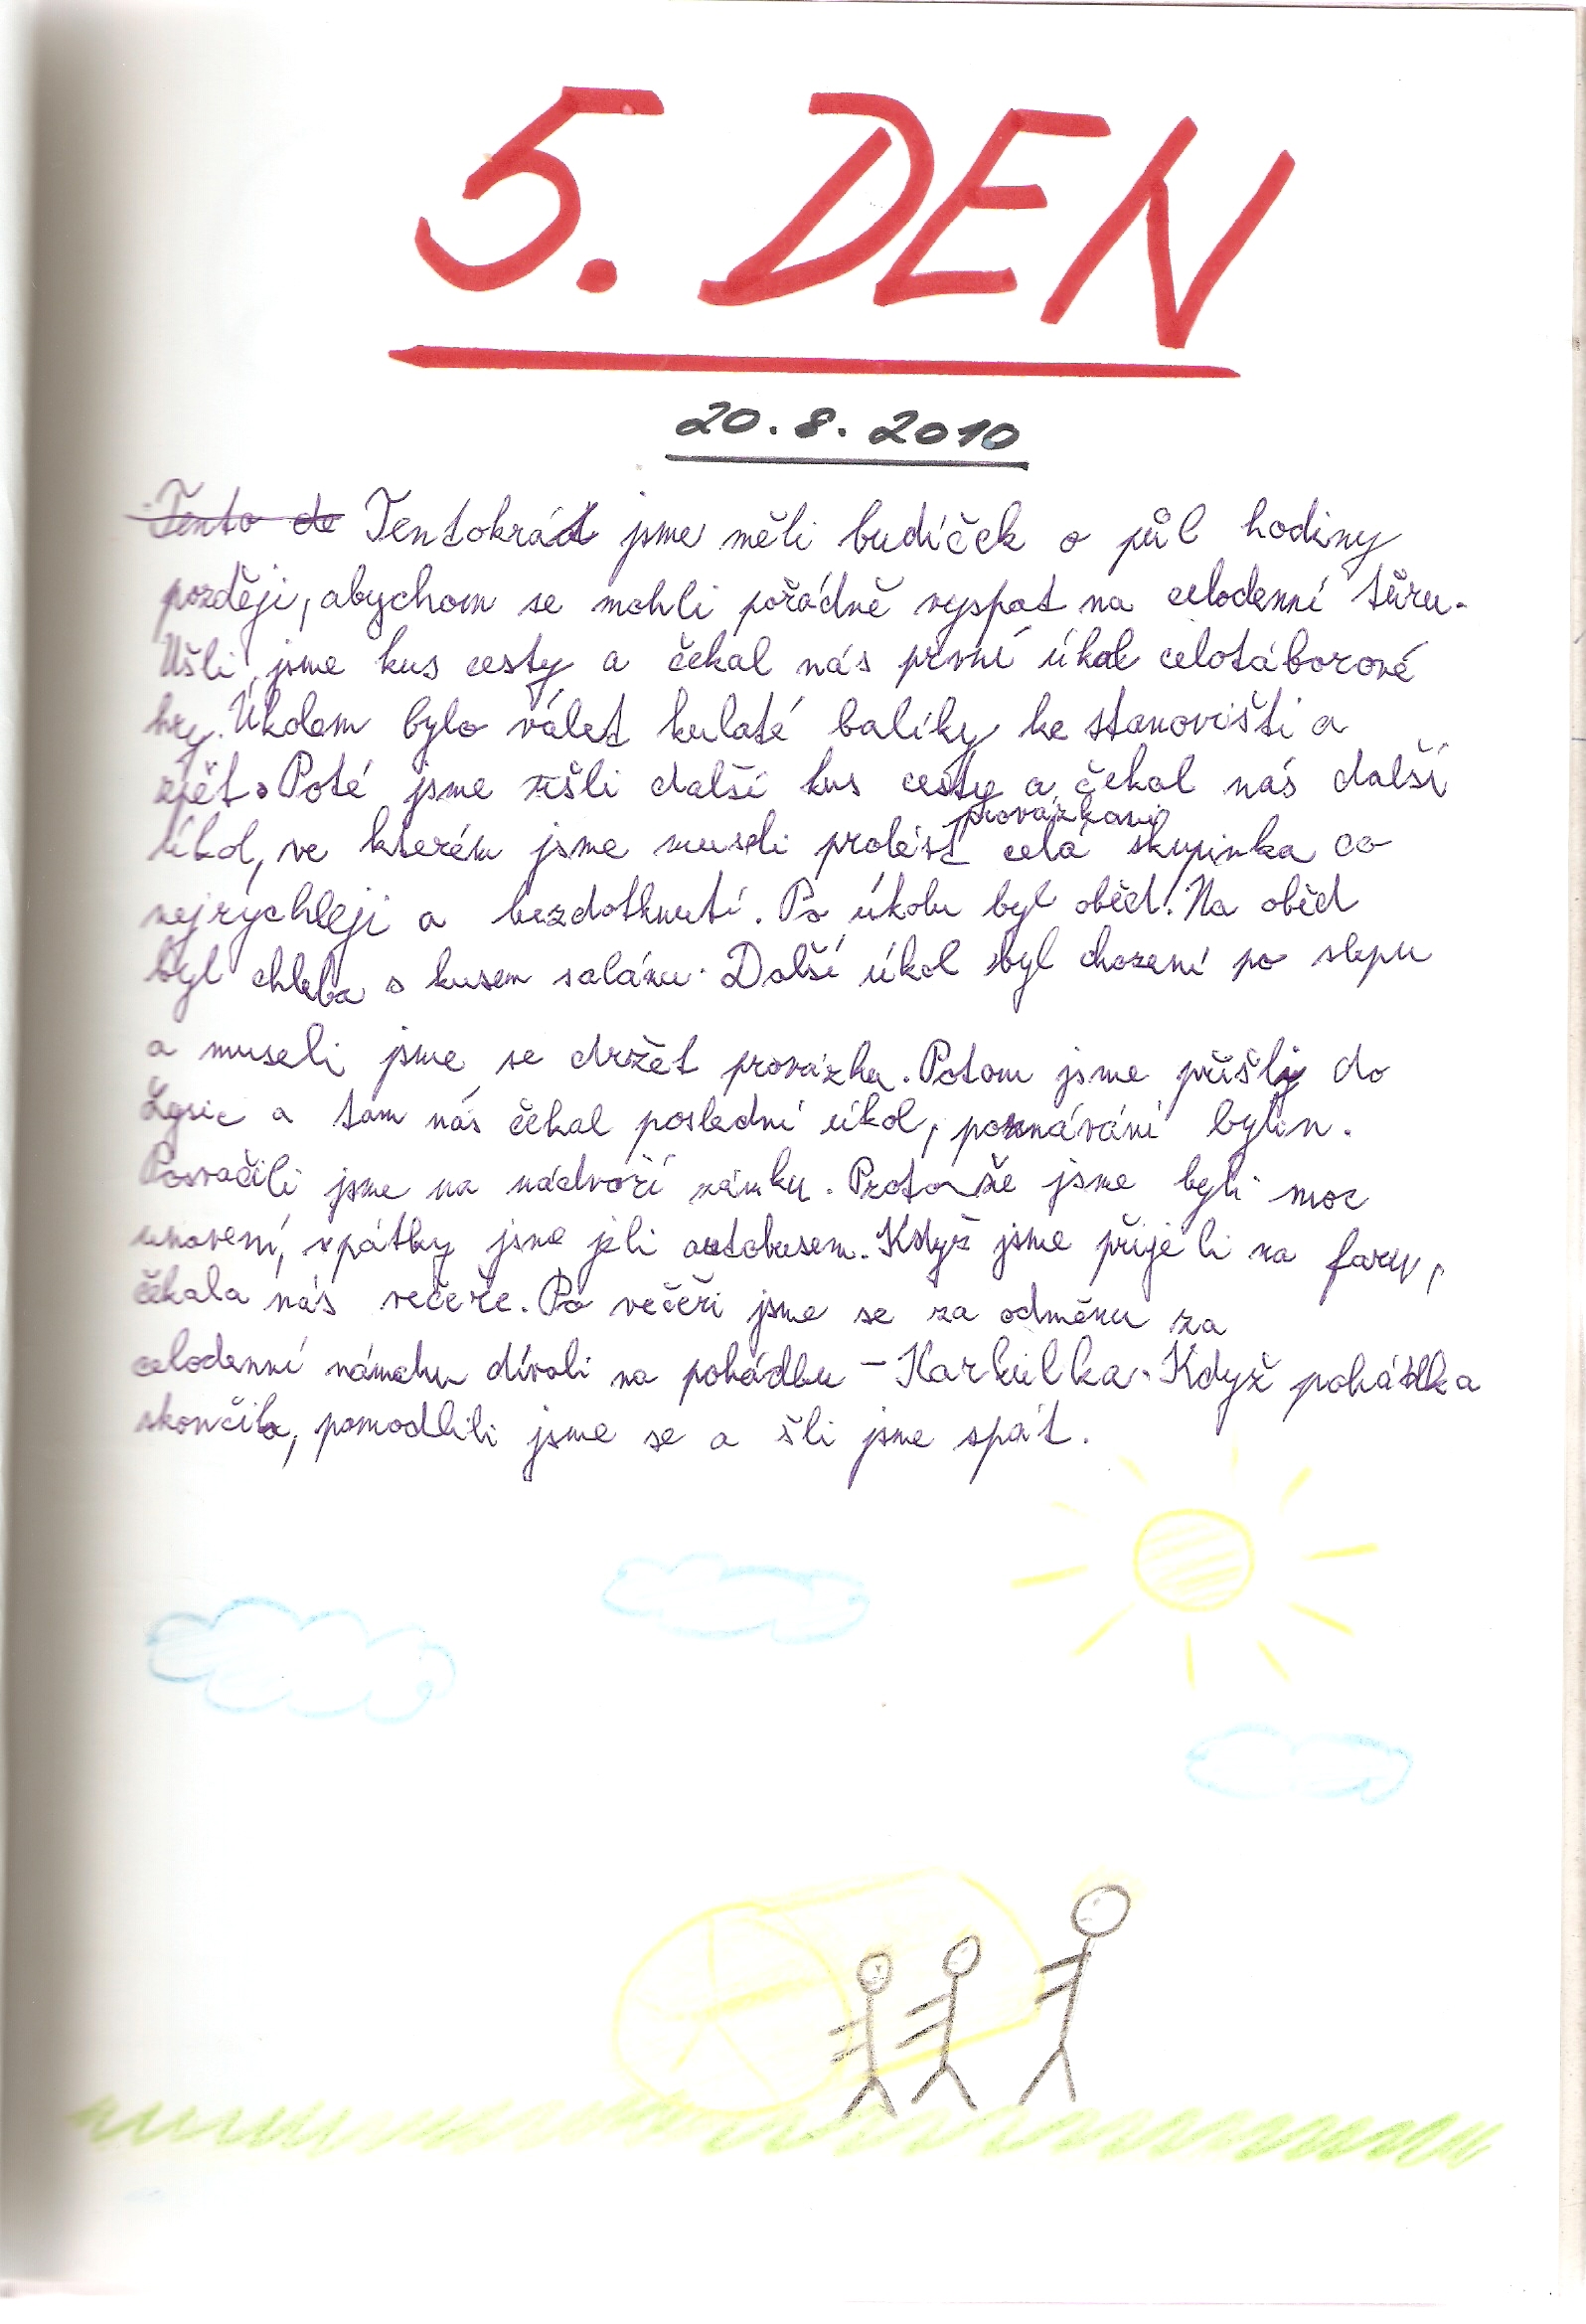 5. DEN
20.8.2010
Tento de Tentokrát jsme měli budíček o půl hodiny
později, abychom se mohli pořádně vyspat na celodenní tůru.
Ušli jsme kus cesty a čekal nás první úkol celotáborové
hry. Úkolem bylo válet kulaté balíky ke stanovišti a
zpět. Poté jsme ušli další kus cesty a čekal nás další
provázkami
úkol, ve kterém jsme museli prolést celá skupinka co
nejrychleji a bezdotknutí. Po úkolu byl oběd. Na oběd
byl chleba s kusem salámu. Další úkol byl chození po slepu
a museli jsme se držet provázku. Potom jsme přišli do
Lysic a tam nás čekal poslední úkol, poznávání bylin.
Posvačili jsme na nádvoří zámku. Protože jsme byli moc
unavení, zpátky jsme jeli autobusem. Když jsme přijeli na faru,
čekala nás večeře. Po večeři jsme se za odměnu za
celodenní námahu dívali na pohádku - Karkulka. Když pohádka
skončila, pomodlili jsme se a šli jsme spát.